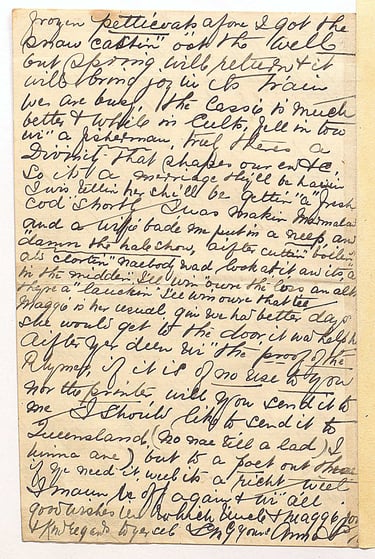 frozen petticoats afore I got the
snaw casten oot the well
but spring will return & it
will bring joy in its train
we are busy, the Lassie is much
better & while in Cults, fell in tow
wi' a fisherman, truly there's a
Divinity that shapes our end &c.
So its a marriage they'll be havin
I wis tellin her she'll be gettin "a fresh
cod" shortly I was makin Marmalade
and a wifie bade me put in a neep, and
"damn the hale chow, aifter cuttin boilin
an' clortin" naebody wad look at it aw its a
in the midden I'll win owre the loss an a
there's a lauchin I'll win owre that tee
Maggie is her usual, gin we had better days
she would get to the door it wad help her
Aifter yer deen wi' the proof of the
Rhymes, if it is of no use to you
nor the printer, will you send it to
me I should like to send it to
Queensland, (No nae till a lad) I
hinna ane) but to a poet out there
if ye need it weel its a richt weel
I maun be off again & wi' all
good wishes in which Uncle & Maggie join
& kind regards to yersel Yours